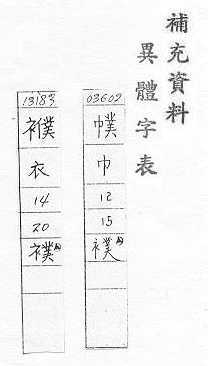 補充資料
異體字表
03602
幞
巾
12
15
襆
13183
襥
衣
14
20
襆